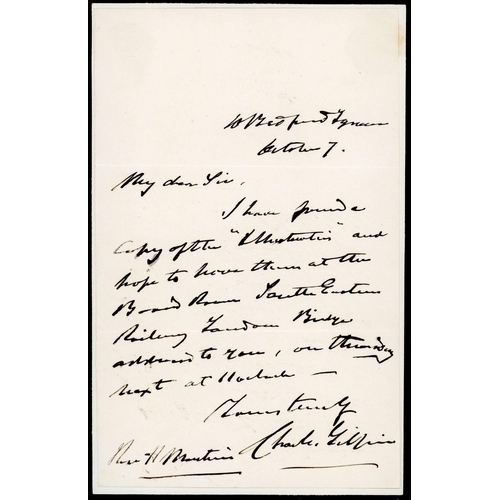 10 Bedford Square
October 7.
My dear Sir,
I have found a
Copy of the "Illustration" and
hope to have them at the
Board Room South Eastern
Railway London Bridge
address to you, on Thursday
next at 11 oclock —
Yours truly
Charles Gilpin
Rev H